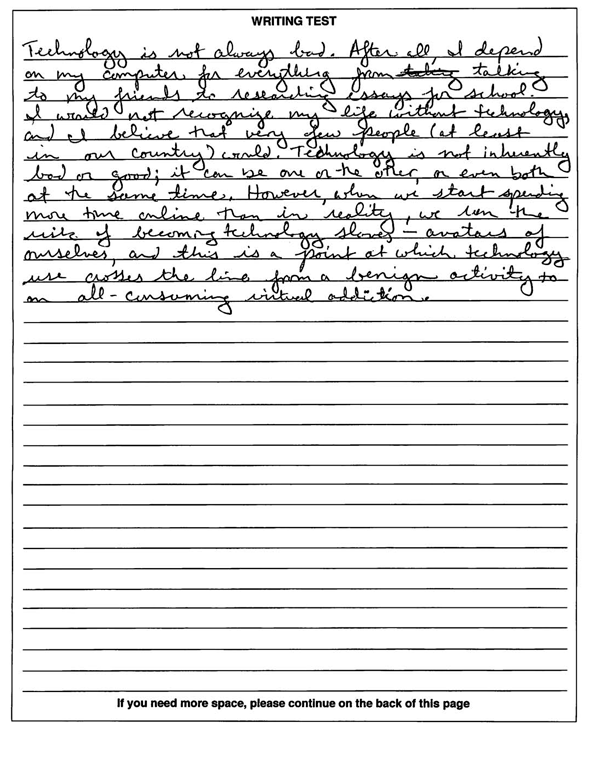 WRITING TEST
Technology is not always bad. After all, I depend
on my computer for everything from talking
to my friends to researching essays for school.
I would not recognize my life without technology,
and I believe that very few people (at least
in our country) could. Technology is not inherently
bad or good; it can be one or the other, or even both
at the same time. However, when we start spending
more time online than in reality, we run the
risk of becoming technology slaves – avatars of
ourselves, and this is a point at which technology
use crosses the line from a benign activity to
an all-consuming virtual addiction.
If you need more space, please continue on the back of this page